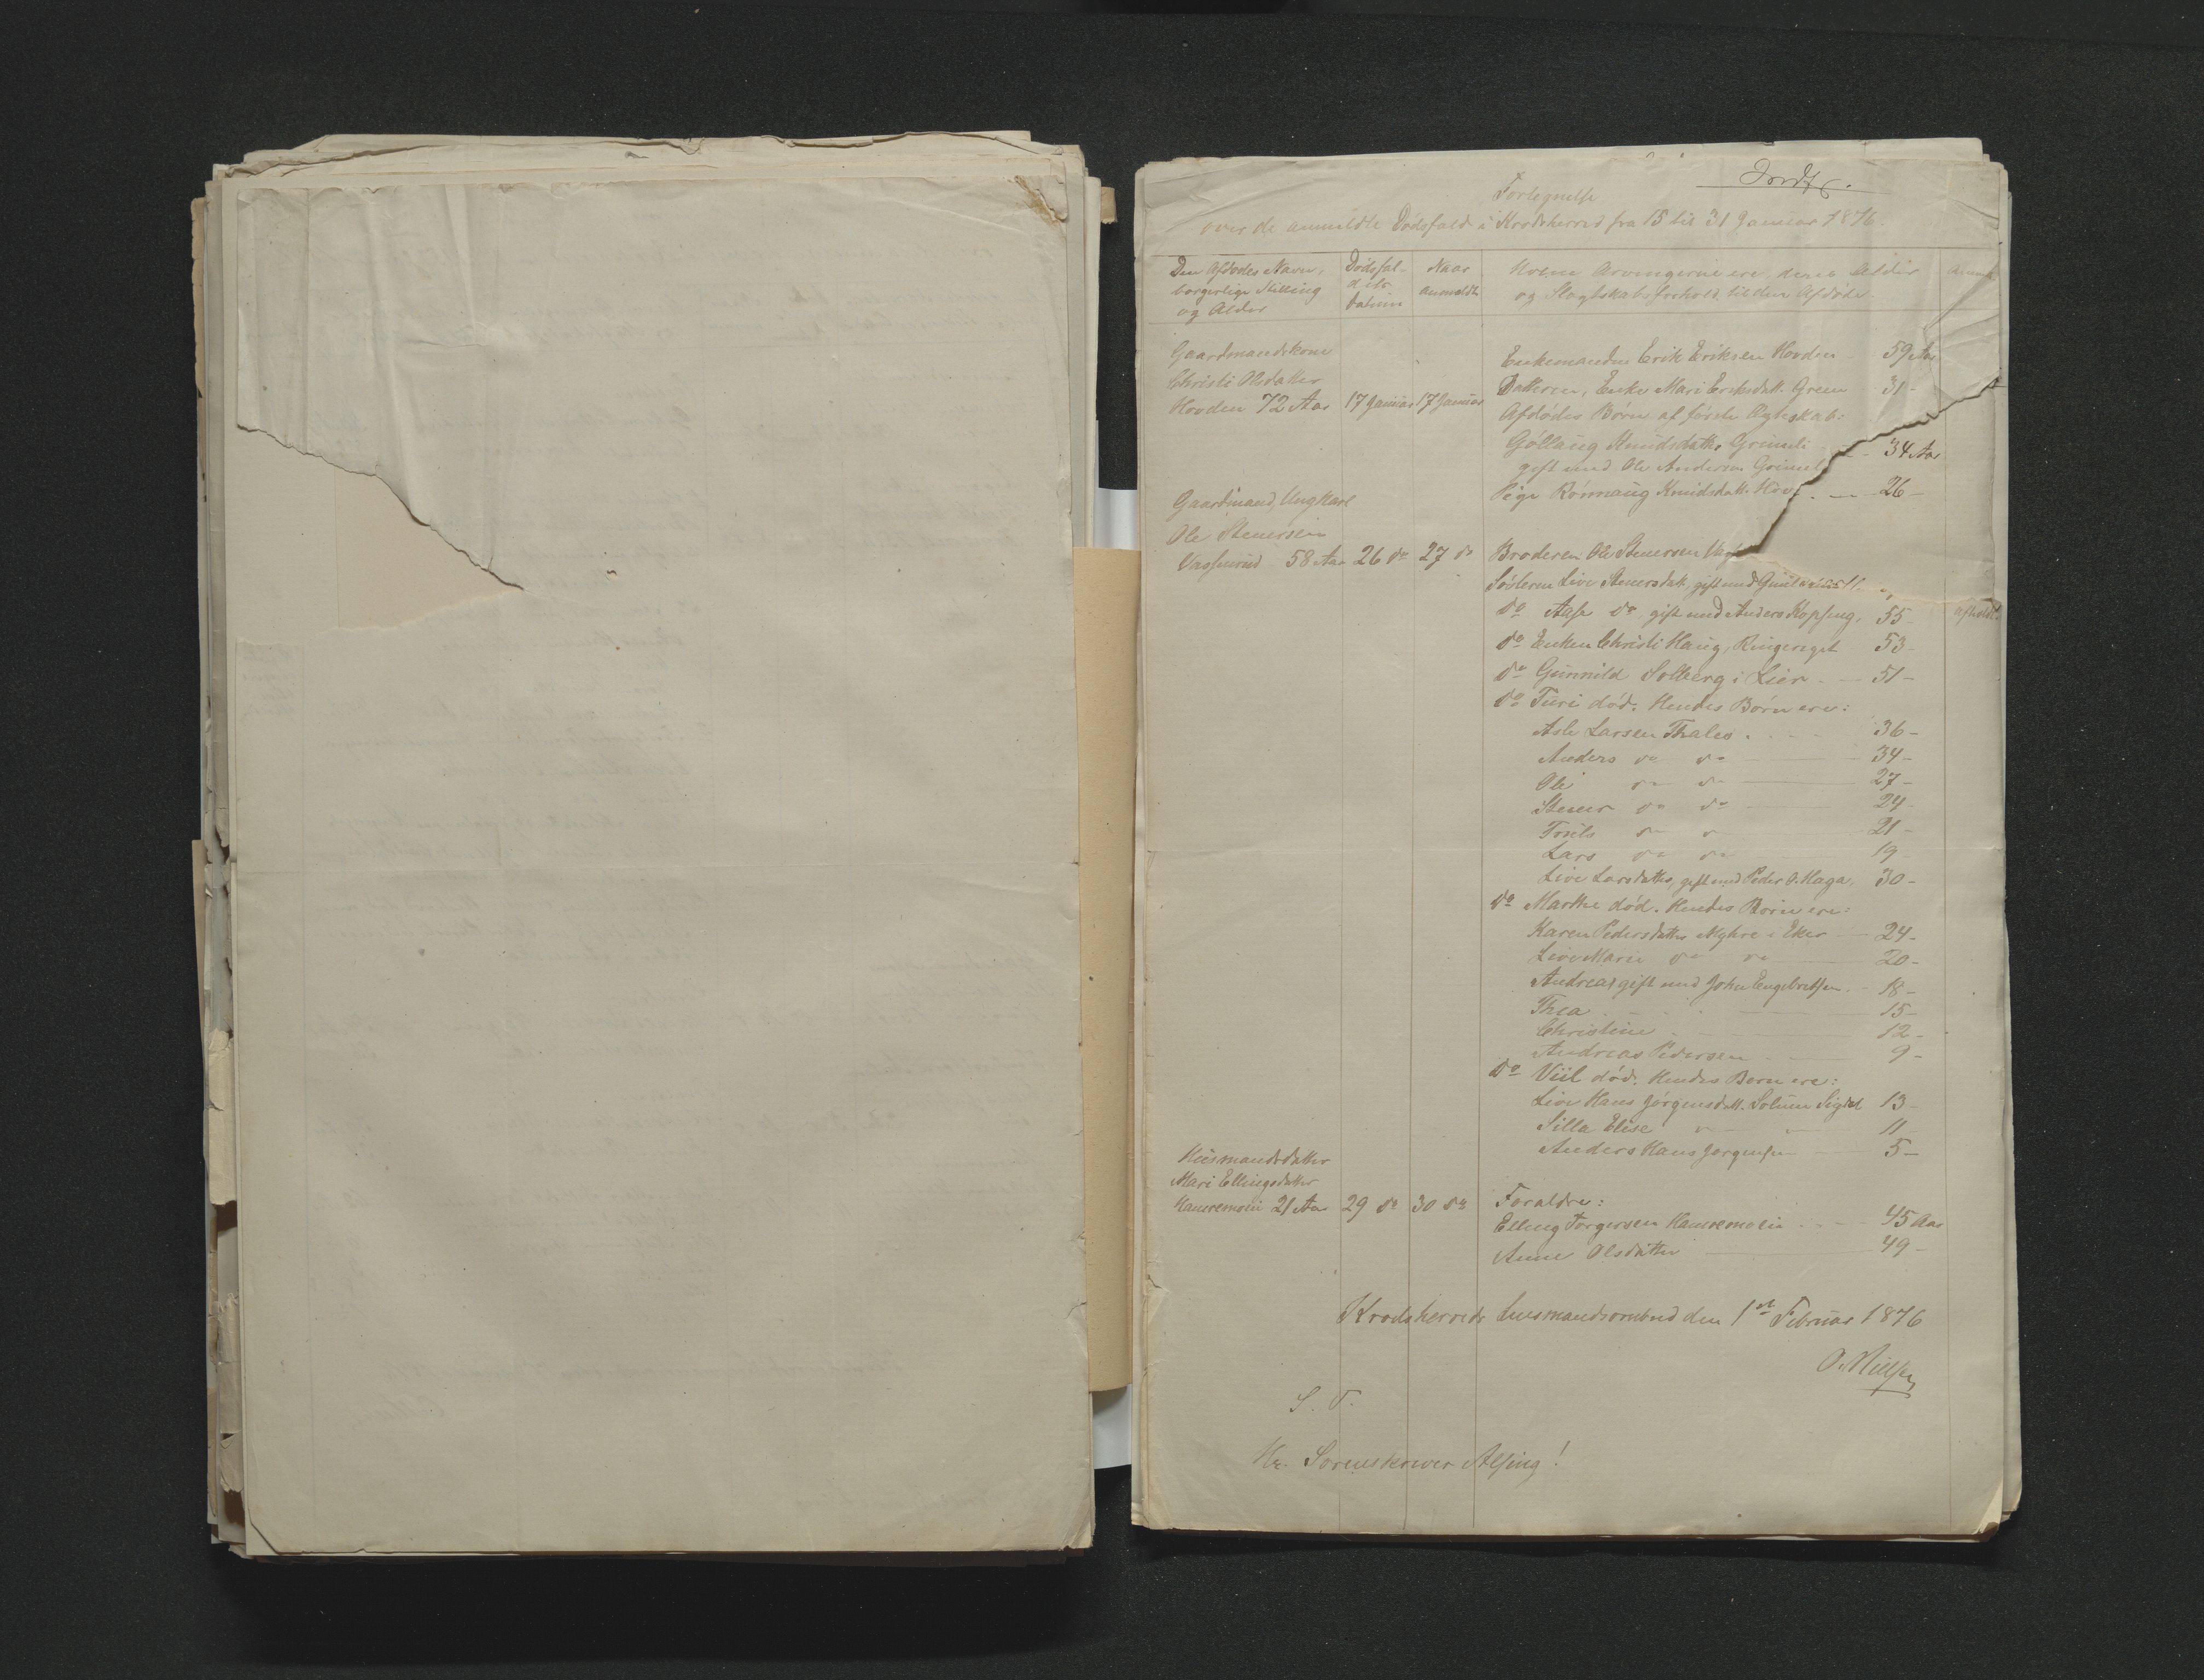 Fortegnelse
over de anmeldte Dødsfald i Krødsherred fra 15 til 31 Januar 1876.
Den Afdødes Navn, borgerlige Stilling og Alder
Dødsfaldets Datum
Naar anmeldt
Hvem Arvingerne ere, deres Alder og Slægtskabsforhold til den Afdøde.
Gaardmandskone
Christi Olsdatter
Hovden 72 Aar 17 Januar 17 Januar
Enkemanden Erik Eriksen Hovden 59 Aar
Datteren, Enke Mari Eriksdatt. Green 31 -
Afdødes Børn af første Ægteskab:
Gøllaug Knudsdatter 34 Aar
gift med Ole Andersen
Pige Rønnaug Knudsdatt. 26 -
Gaardmand, Ungkarl
Ole Steenersen
58 Aar 26 do 27 do
Broderen Ole Steenersen
Søsteren Live Steenersdatt. gift med
do Aase do gift med Anders Kopseng. 55 -
afholdt
do Enken Christi Haug, Ringeriget 53 -
do Gunnild Solberg i Lier - 51 -
do Turi død. Hendes Børn ere:
Asle Larsen Thales 36 -
Anders do do 34 -
Ole do do 27 -
Steener do do 24
Truls do do 21 -
Lars do do 19
Live Larsdatter, gift med Peder O. Haga, 30 -
do Marthe død. Hendes Børn ere:
Karen Pedersdatter Myhre i Eker - 24 -
Live Marie do do 20 -
Andrea gift med John Engebretsen. 18 -
Thea 15 -
Christine 12 -
Andreas Pedersen 9 -
do Viil død. Hendes Børn ere:
Live Hans Jørgensdatt. Solum Sigdal 13 -
Silla Elise 11
Anders Hans Jørgensen 5 -
Huusmandsdatter
Mari Ellingsdatter
Hamremoen 21 Aar 29 do 30 do
Forældre:
Elling Torgersen Hamremoen 45 Aar
Anne Olsdatter 49 -
Krødsherreds Lensmandsombud den 1st Februar 1876
O. Nilsen
S. T.
Hr. Sorenskriver Alsing!